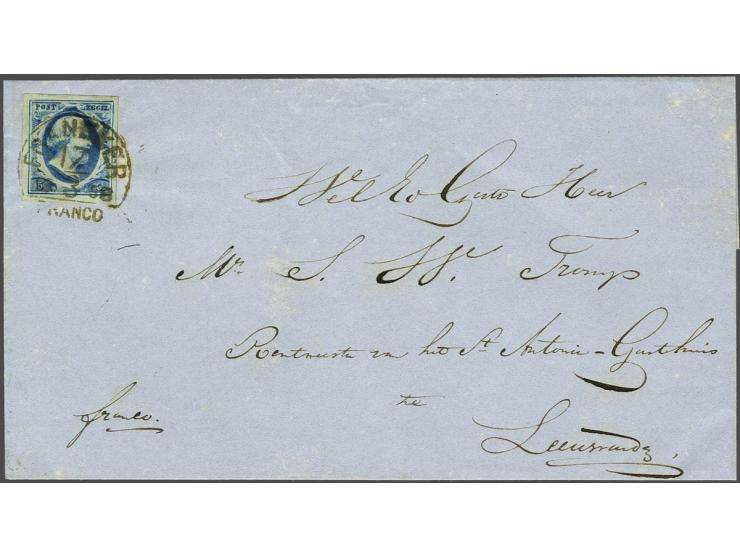 POST ZEGEL
FRANEKER
FRANCO
Wel Ed Gestr Heer
Mr. S. W. Tromp
Rentmeester van het St Antonie-Gasthuis
te
Leeuwarden
franco.